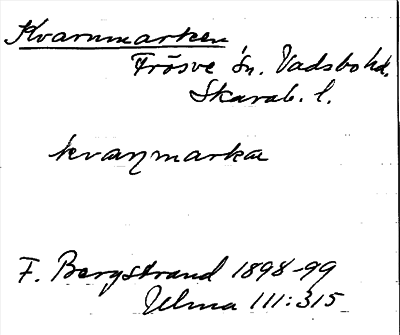 Kvarnmarken
Frösve sn. Vadsbo hd.
Skarab. l.
kvaɳmarka
F. Bergstrand 1898-99
Ulma 111:315